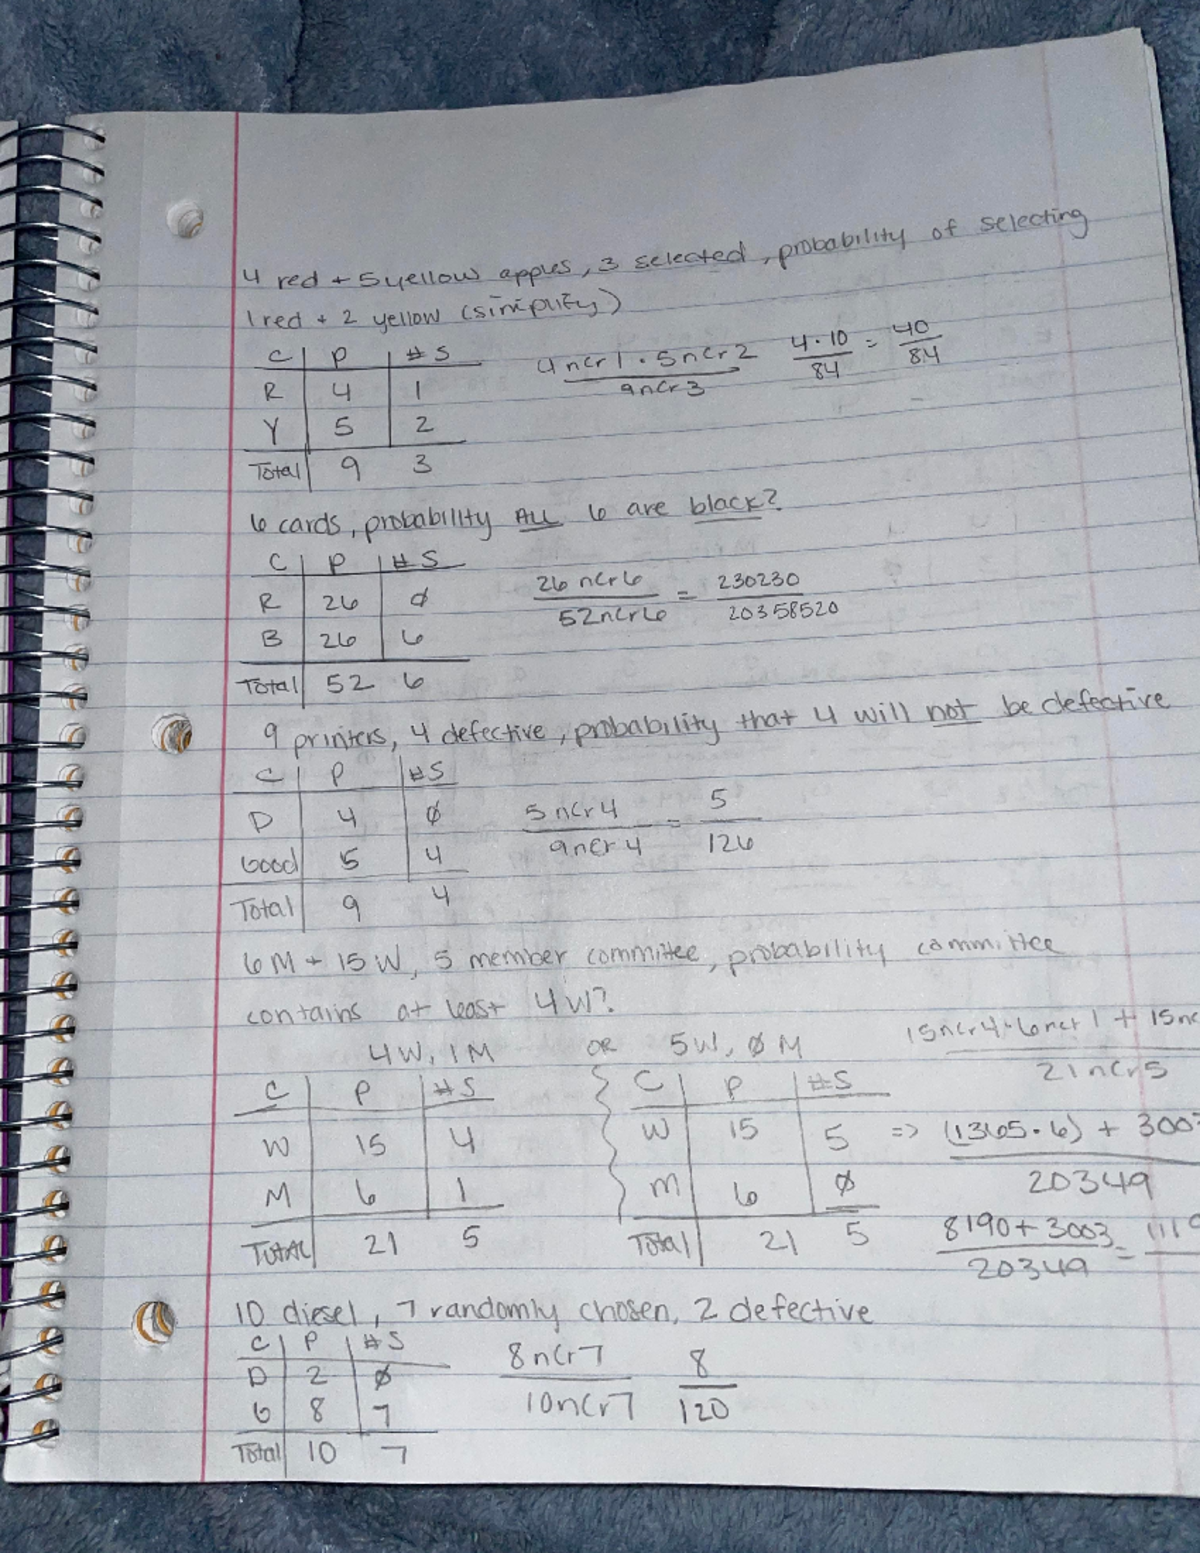 4 red + 5 yellow apples, 3 selected, probability of selecting
1 red + 2 yellow (simplify)
C P #S
R 4 1
Y 5 2
Total 9 3
4ncr1 · 5ncr2 / 9ncr3 4·10 / 84 = 40 / 84
6 cards, probability ALL 6 are black?
C P #S
R 26 Ø
B 26 6
Total 52 6
26 ncr 6 / 52ncr6 = 230230 / 20358520
9 printers, 4 defective, probability that 4 will not be defective
C P #S
D 4 Ø
Good 5 4
Total 9 4
5 ncr 4 / 9 ncr 4 = 5 / 126
6M + 15W, 5 member committee, probability committee
contains at least 4W?
4W, 1M OR 5W, Ø M
C P #S
W 15 4
M 6 1
TOTAL 21 5
C P #S
W 15 5
M 6 Ø
Total 21 5
15ncr4·6ncr1 + 15nc / 21ncr5
=> (1365·6) + 3003 / 20349
8190+3003 / 20349 = 1119
10 diesel, 7 randomly chosen, 2 defective
C P #S
D 2 Ø
G 8 7
Total 10 7
8ncr7 / 10ncr7 8 / 120